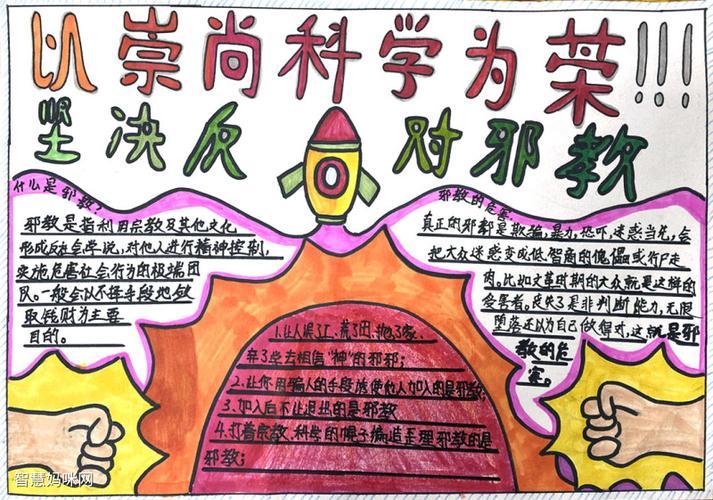 以崇尚科学为荣!!!
坚决反对邪教
什么是邪教?
邪教是指利用宗教及其他文化
形成反社会学说,对他人进行精神控制,
实施危害社会行为的极端团
队。一般会以不择手段地敛
取钱财为主要
目的。
邪教的危害:
真正的邪都是欺骗,暴力,恐吓,迷惑当先,会
把大众迷惑变成低智商的傀儡或行尸走
肉。比如文革时期的大众就是这样的
受害者。丧失了是非判断能力,无限
堕落还以为自己做得对,这就是邪
教的危
害。
1.让人误了工、荒了田、抛了家、
弃了些去相信“神”的邪邪;
2.让你用骗人的手段
他人加入的是邪教;
3.加入后不让退出的是邪教
4.打着宗教、科学的幌子编造歪理邪教的是
邪教;
智慧妈咪网